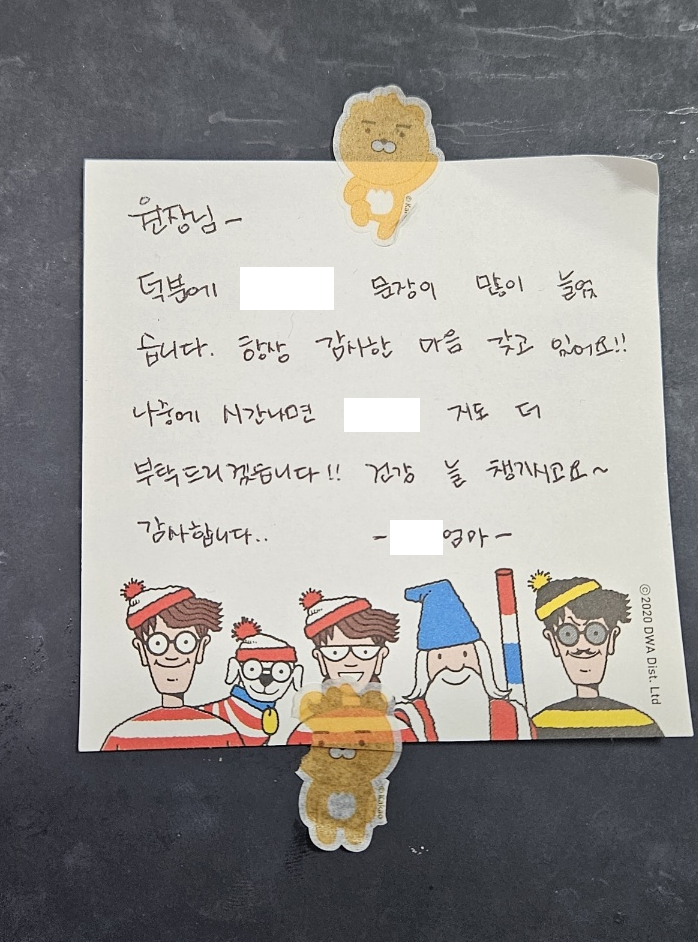 원장님~
덕분에 문장이 많이 늘었
습니다. 항상 감사한 마음 갖고 있어요!!
나중에 시간나면 저도 더
부탁드리겠습니다!! 건강 늘 챙기시고요~
감사합니다.. - 엄마 -
©2020 DWA Dist. Ltd